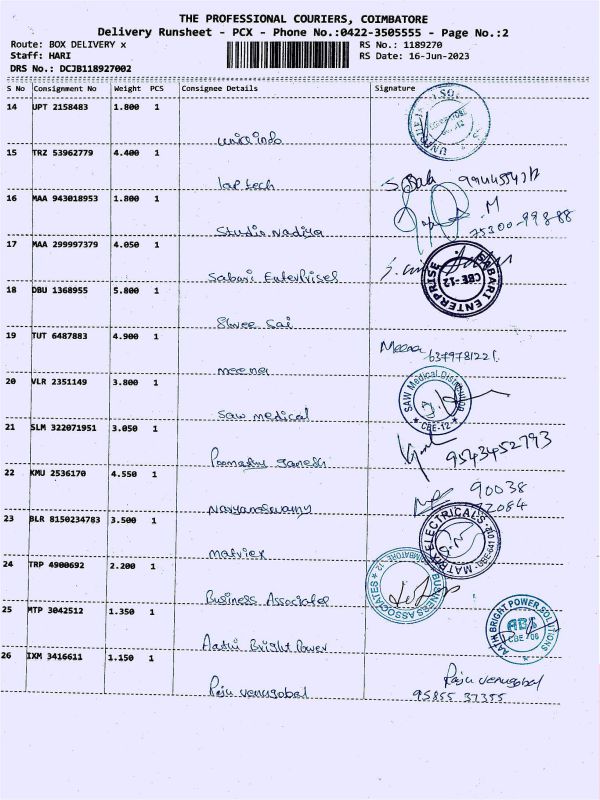 THE PROFESSIONAL COURIERS, COIMBATORE
Delivery Runsheet - PCX - Phone No.:0422-3505555 - Page No.:2
Route: BOX DELIVERY x RS No.: 1189270
Staff: HARI RS Date: 16-Jun-2023
DRS No.: DCJB118927002
S No Consignment No Weight PCS Consignee Details Signature
14 UPT 2158483 1.800 1
15 TRZ 53962779 4.400 1
lap tech
16 MAA 943018953 1.800 1
Studio nadiya
75300-99888
17 MAA 299997379 4.050 1
Sabari Enterprises
SABARI ENTERPRISE
CBE-12
18 DBU 1368955 5.800 1
Shree Sai
19 TUT 6487883 4.900 1
Meena 6379781221.
meena
20 VLR 2351149 3.800 1
Saw medical
SAW Medical Distributor
CBE-12
21 SLM 322071951 3.050 1
ganesh
9543452793
22 KMU 2536170 4.550 1
Naryanaswamy
90038
72084
23 BLR 8150234783 3.500 1
matriex
MATRIX ELECTRICALS
24 TRP 4900692 2.200 1
Business Associates
BUSINESS ASSOCIATES
COIMBATORE-12
25 MTP 3042512 1.350 1
Aathi Bright Power
AATHI BRIGHT POWER SOLUTIONS
ABS
CBE-06
26 IXM 3416611 1.150 1
Raju venugobal
Raju venugobal
95855 37355